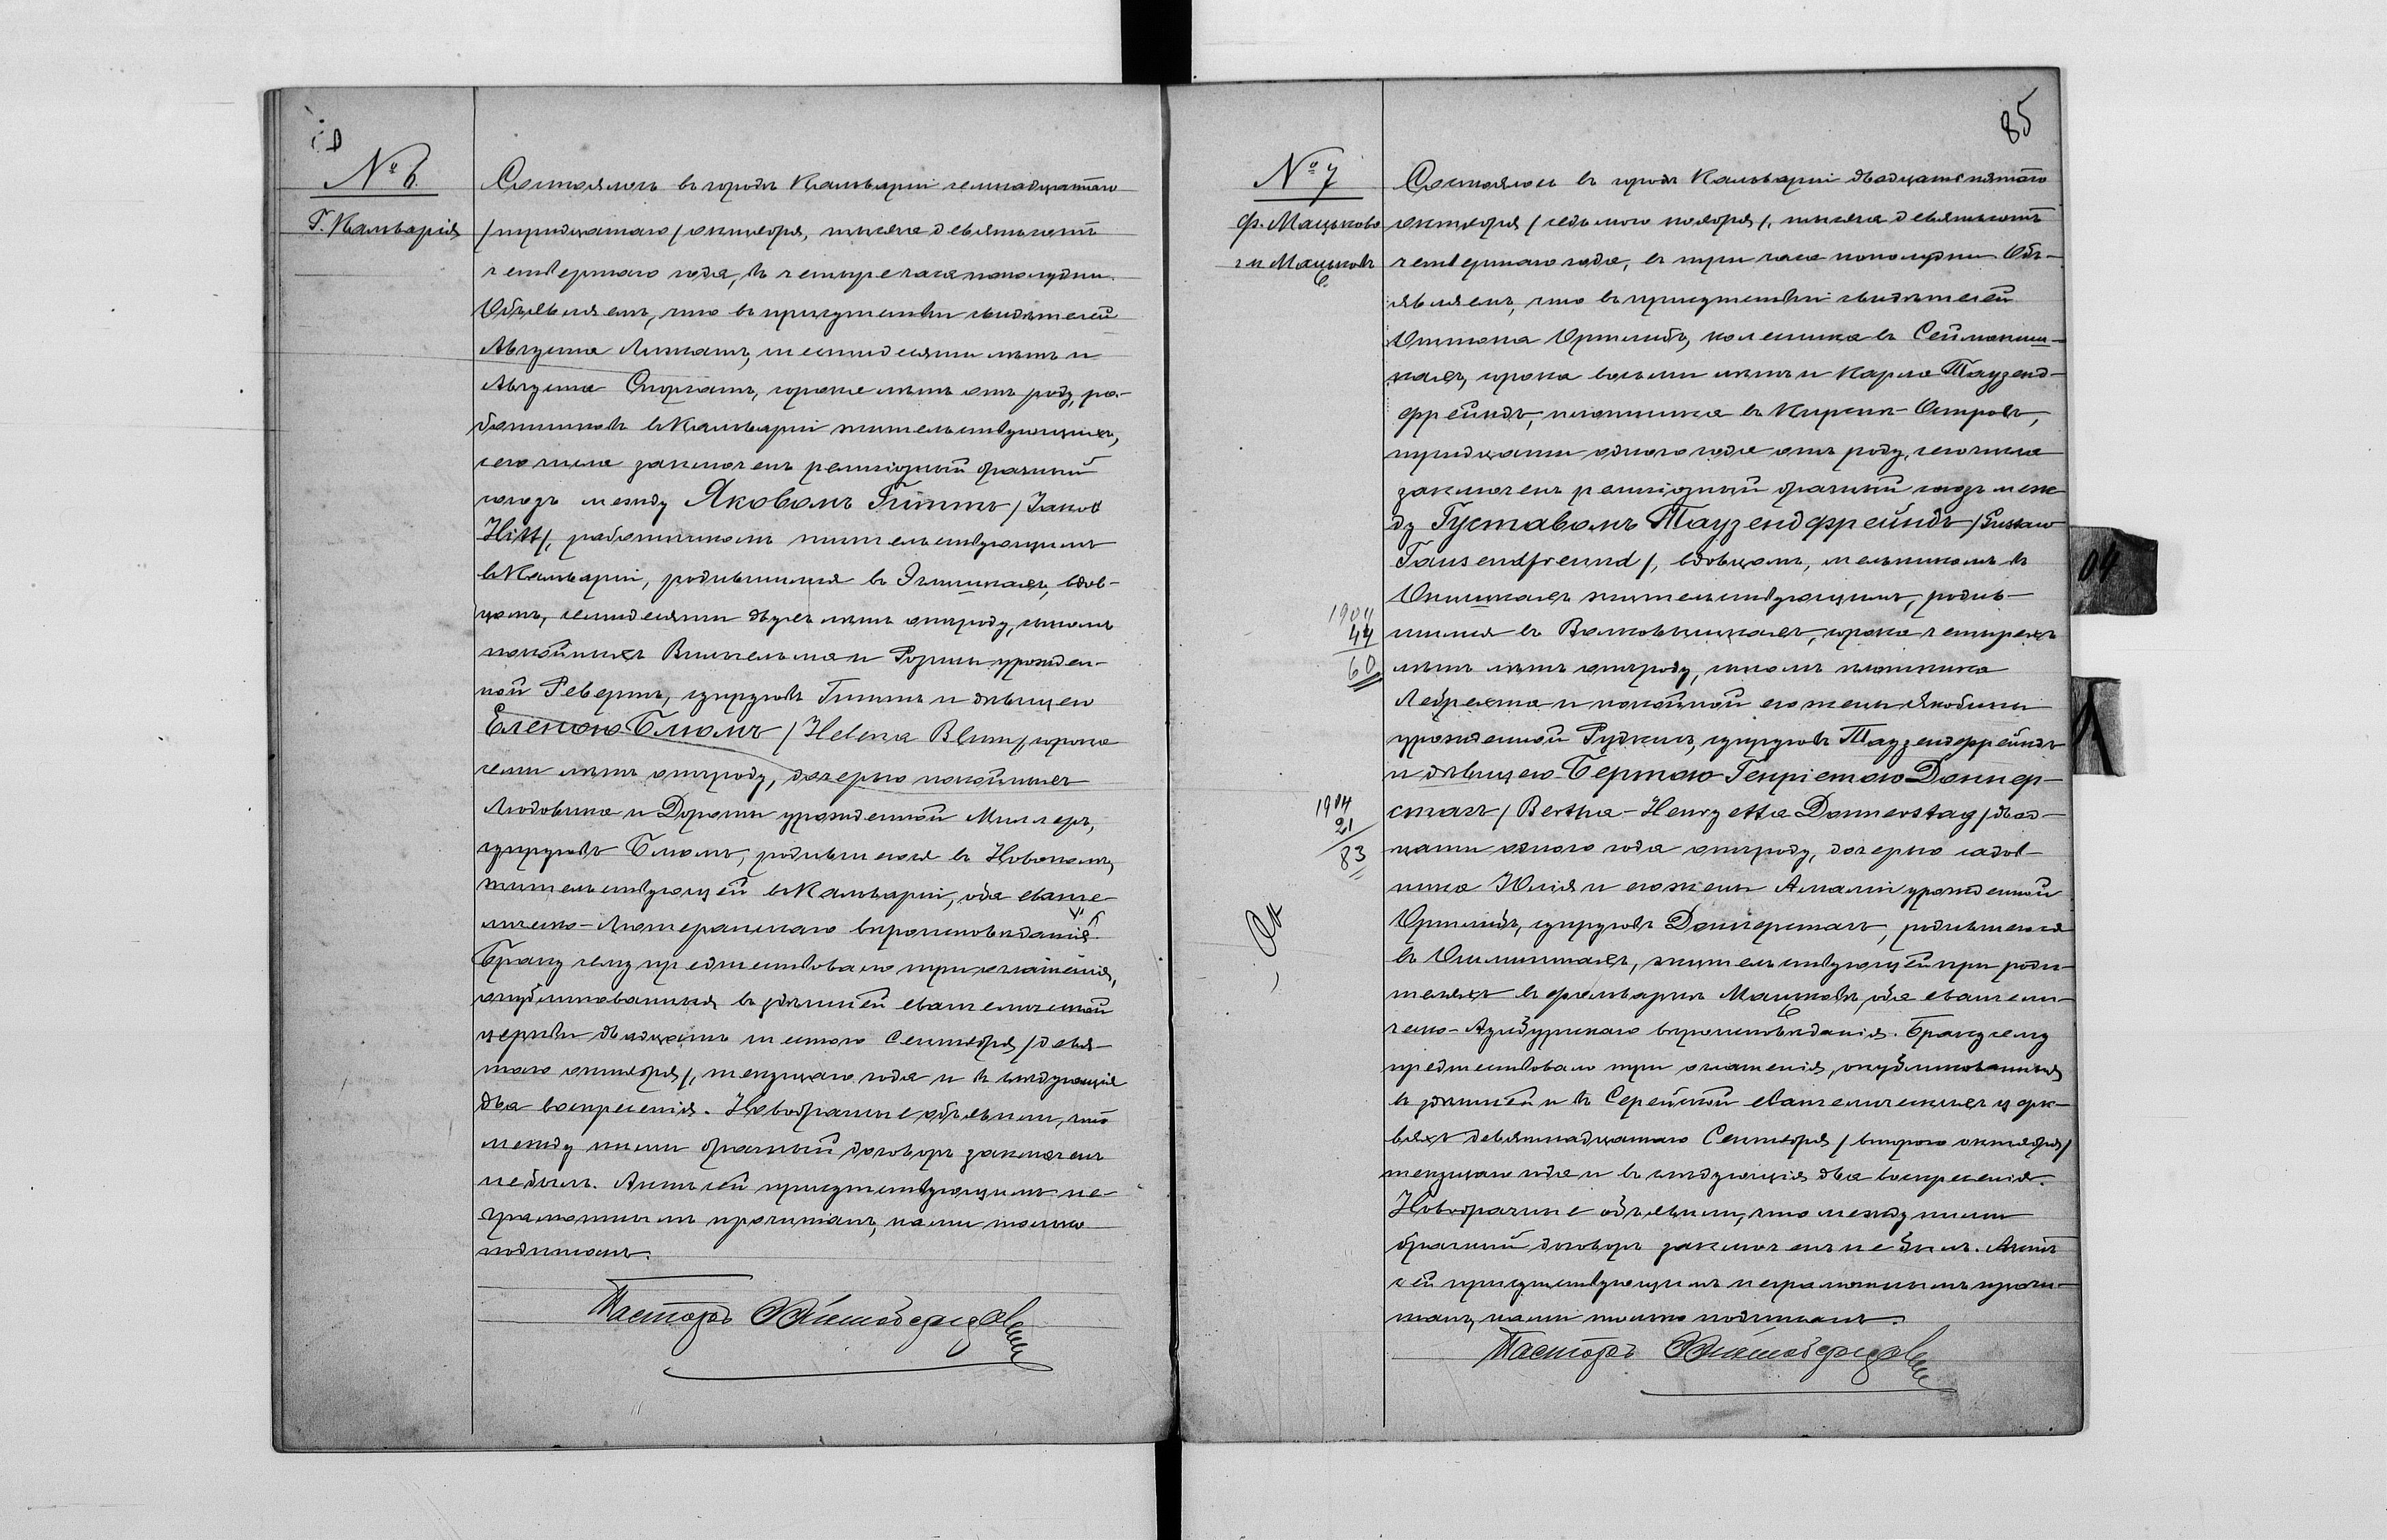 № 6.
Г. Кальварія
Состоялось въ городѣ Кальваріи семнадцатаго
/тридцатаго/ октября, тысяча девятьсотъ
четвертаго года, въ четыре часа пополудни.
Объявляемъ, что въ присутствіи свидѣтелей
Августа шестидесяти лѣтъ и
Августа сорока лѣтъ отъ роду, ра-
ботниковъ въ Кальваріи жительствующихъ,
сего числа заключенъ религіозный брачный
союзъ между Яковомъ Гиттъ /Jakob
Hitt/, работникомъ жительствующимъ
въ Кальваріи, родившимся въ вдов-
цомъ, семидесяти двухъ лѣтъ отъ роду, сыномъ
покойныхъ Вильгельма и Розины урожден-
ной Ревертъ, супруговъ Гиттъ и дѣвицею
Еленою Блюмъ /Helena Blum/, сорока
семи лѣтъ отъ роду, дочерью покойныхъ
Людовика и Дороты урожденной Миллеръ,
супруговъ Блюмъ, родившеюся въ
жительствующей въ Кальваріи, оба еванге-
лическо-Лютеранскаго вѣроисповѣданія.
Браку сему предшествовало три оглашенія,
опубликованныя въ здѣшней евангелической
церкви двадцать шестого Сентября /девя-
таго октября/, текущаго года и въ слѣдующія
два воскресенія. Новобрачные объявили, что
между ними брачный договоръ заключенъ
не былъ. Актъ сей присутствующимъ не-
грамотнымъ прочитанъ, нами только
подписанъ.
Пасторъ
85
№ 7
ф. Мацьково
гм Мацьковъ
Состоялось въ городѣ Кальваріи двадцать пятаго
октября /седьмого ноября/, тысяча девятьсотъ
четвертаго года, въ три часа пополудни. Объ-
являемъ, что въ присутствіи свидѣтелей
Ортлибъ, колесника въ
сорока восьми лѣтъ и Карла Таузенд-
фрейндъ, плотника въ
тридцати одного года отъ роду, сего числа
заключенъ религіозный брачный союзъ меж-
ду Густавомъ Таузендфрейндъ /Gustaw
Tausendfreund/, вдовцомъ, мельникомъ въ
жительствующимъ, родив-
шимся въ сорока четырехъ
лѣтъ лѣтъ отъ роду, сыномъ плотника
и покойной его жены Якобины
урожденной супруговъ Таузендфрейндъ
и дѣвицею Бертою Генріетою Доннер-
стагъ /Bertha-Henryetta Donnerstag/ двад-
цати одного года отъ роду, дочерью садов-
ника Юлія и его жены Амаліи урожденной
Ортлибъ, супруговъ Доннерстагъ, родившеюся
въ жительствующей при роди-
теляхъ въ фольваркѣ Мацьковѣ, оба евангели-
ческо-Аугсбургскаго вѣроисповѣданія. Браку сему
предшествовало три оглашенія, опубликованныя
въ здѣшней и въ Серейской евангелическихъ церк-
вяхъ девятнадцатаго Сентября /второго октября/
текущаго года и въ слѣдующія два воскресенія.
Новобрачные объявили, что между ними
брачный договоръ заключенъ не былъ. Актъ
сей присутствующимъ неграмотнымъ прочи-
танъ, нами только подписанъ.
Пасторъ
1904
44
60
1904
21
83
04